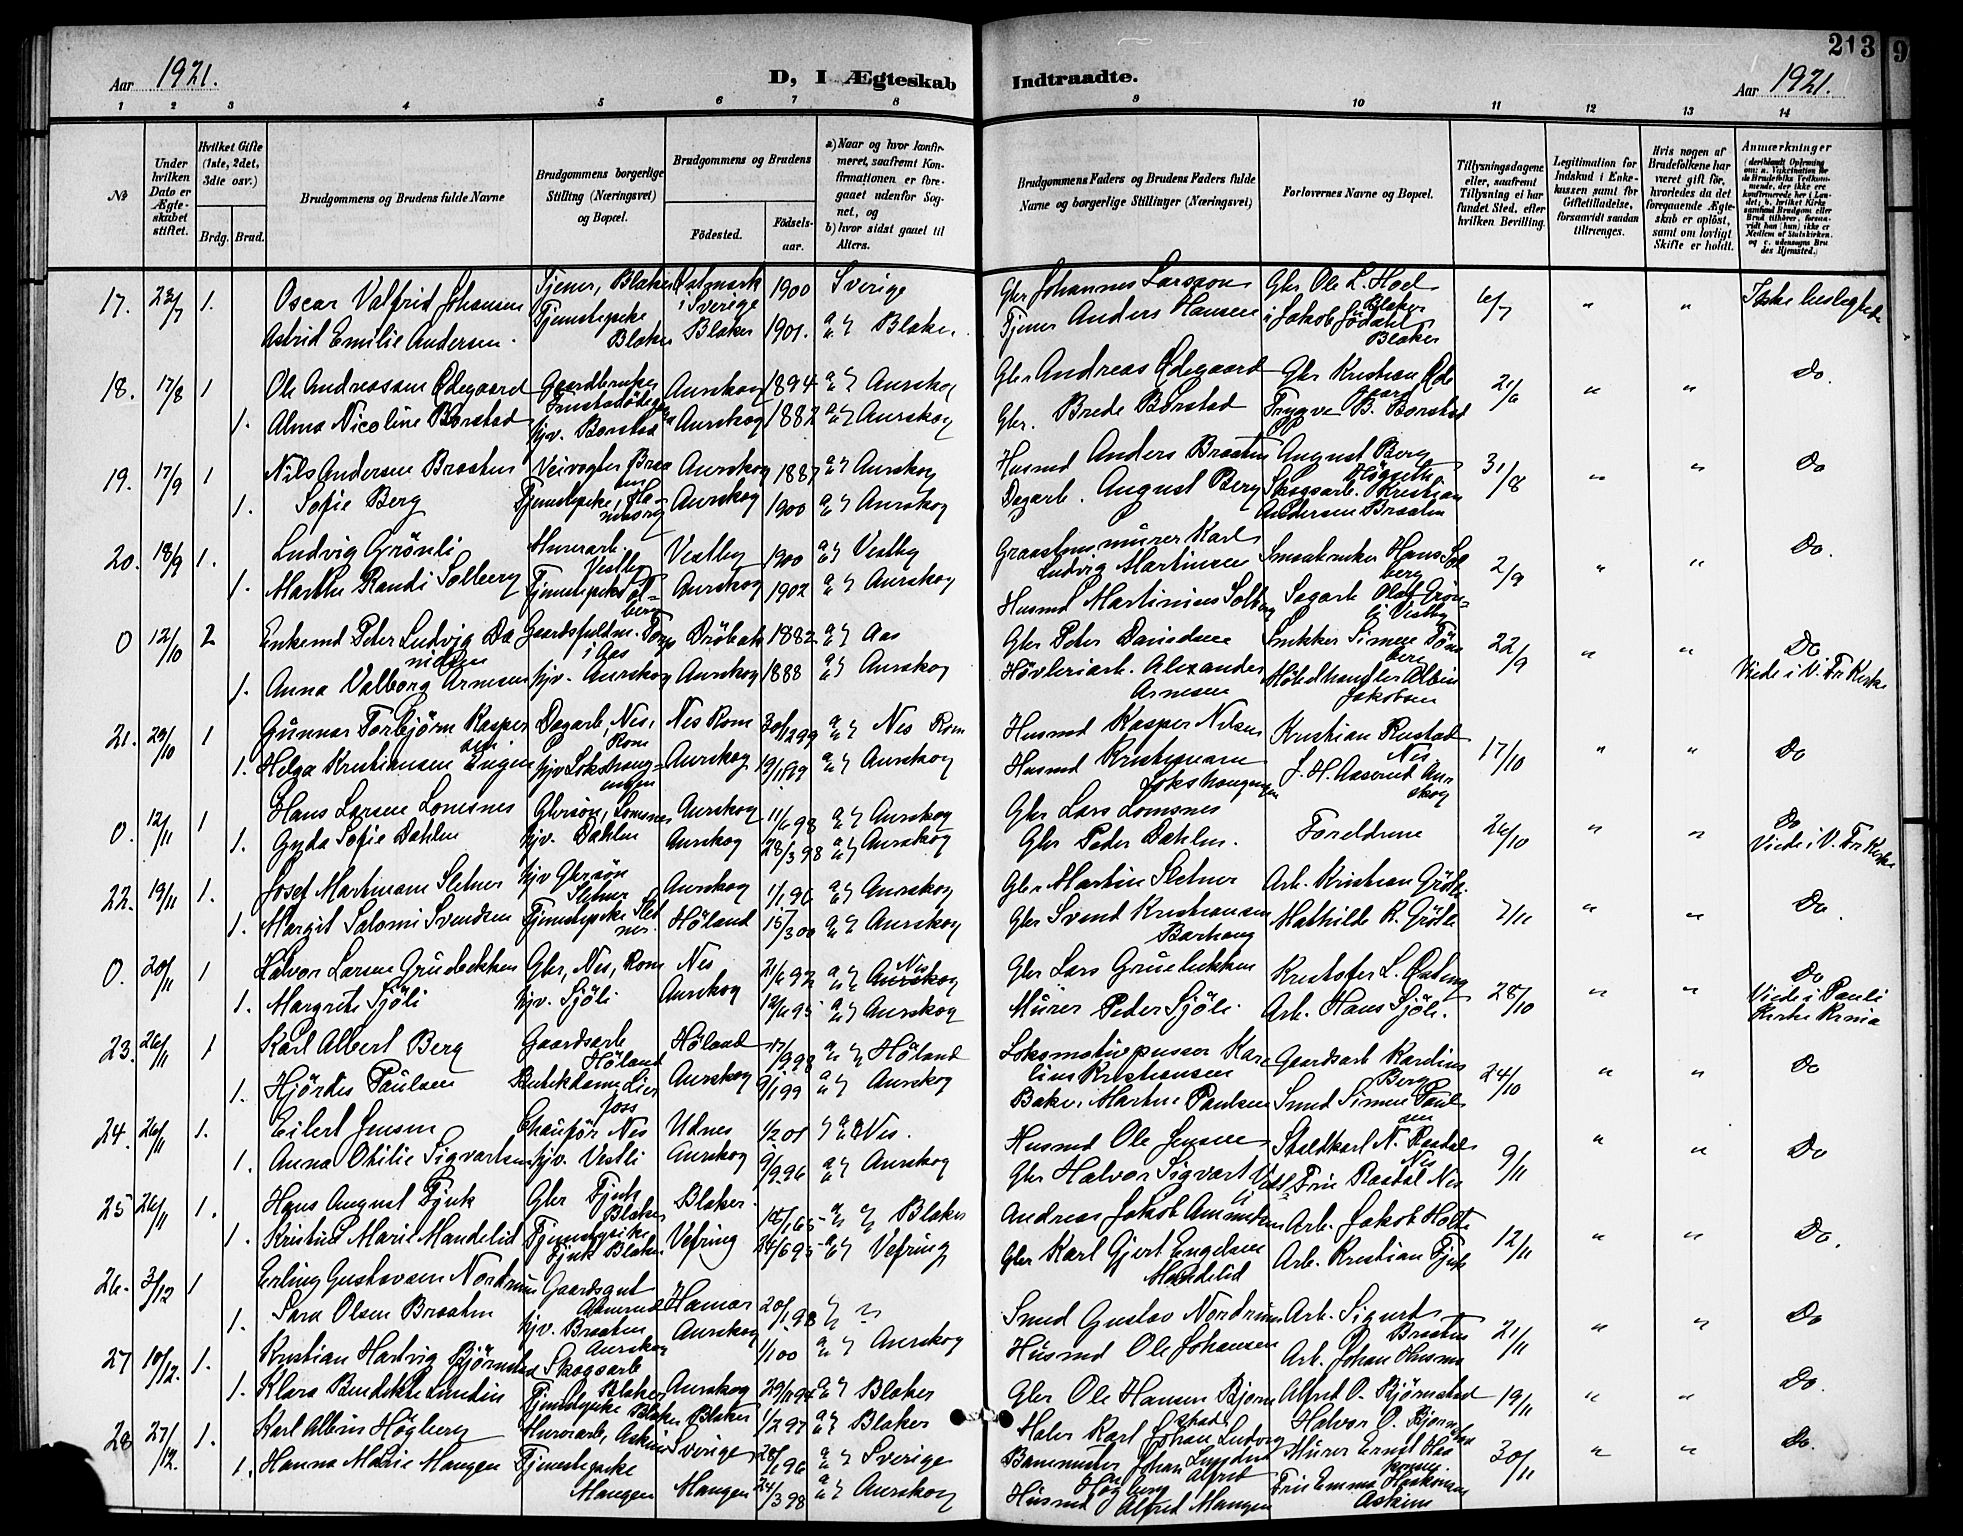 213
9
Aar 1921.
D, I Ægteskab
Indtraadte.
Aar 1921.
1 2 3 4 5 6 7 8
9 10 11 12 13 14
№
Under hvilken Dato er Ægteskabet stiftet.
Hvilket Gifte (1ste, 2det, 3die osv.)
Brdg. Brud.
Brudgommens og Brudens fulde Navne
Brudgommens borgerlige Stilling (Næringsvei) og Bopæl.
Brudgommens og Brudens
Födested.
Födselsaar.
a) Naar og hvor konfirmeret, saafremt Konfirmationen er foregaaet udenfor Sognet, og
b) hvor sidst gaaet til Alters.
Brudgommens Faders og Brudens Faders fulde Navne og borgerlige Stillinger (Næringsvei)
Forlovernes Navne og Bopæl.
Tillysningsdagene eller, saafremt Tillysning ei har fundet Sted, efter hvilken Bevilling.
Legitimation for Indskud i Enkekassen samt for Giftetilladelse, forsaavidt saadan tiltrænges.
Hvis nogen af Brudefolkene har været gift för, hvorledes da det foregaaende Ægteskab er oplöst, samt om lovligt Skifte er holdt.
Anmærkninger
17. 23/7 1. Oscar Valfrid Johansen Tjener, Blaker i Sverige 1900 Sverige Gbr Johannes Larsson Gbr Ole L. Hoel Blaker 6/7 " " Ikke beslegtede
Astrid Emilie Andersen Tjenestepike Blaker Blaker 1901. Blaker. Tjener Anders Hansen Jakob Jödahl Blaker
18. 17/8 1 Ole Andreassen Ødegaard Gaardbruker Aurskog 1894 Aurskog Gbr Andreas Ødegaard Gbr Kristian Øde gaard 21/6 " " Do.
1. Alma Nicoline Borstad hjv. Borstad Aurskog 1882 Aurskog Gbr. Brede Borstad Trygve B. Borstad
19. 17/9 1 Nils Andersen Braaten Veivogter Braa ten Aurskog 1887 Aurskog Husmd Anders Braaten August Berg 31/8 " " Do
1. Sofie Berg Tjenestepike Aurskog 1900 Aurskog Dagarb. August Berg Skogsarb. Kristian Andersen Braaten
20. 18/9 1. Ludvig Grönli Murerarb. Vestby Vestby 1900 Vestby Graastensmurer Karl Ludvig Martinsen Smaabruker Hans Sol berg 2/9 " " Do.
1. Marthe Randi Solberg Tjenestepike Sol berg Aurskog 1902 Aurskog Husmd Martinius Solberg Sagarb Olaf Grön li Vestby
0 12/10 2 Enkemd Peter Ludvig Da nidsen Gaardsfuldm. Torp i Aas Dröbak 1882 Aas Gbr Peter Danidsen Snekker Simen Töns berg 22/9 " " Do
1. Anna Valborg Arnesen hjv. Aurskog Aurskog 1888 Aurskog Hövleriarb. Alexander Arnesen Möbelhandler Albin Jakobsen Viede i V. Fr Kirke
21. 29/10 1 Gunnar Torbjörn Kasper sen Dagarb, Nes, Rom Nes Rom 30/12 99 Nes Rom Husmd Kasper Nilsen Kristian Rustad Nes 17/10 " " Do
1. Helga Kristiansen Engen hjv Lokshaug Aurskog Aurskog Husmd Kristian Lokshaugengen J. H. Aaserud Aur skog
0. 12/11 1 Hans Larsen Lomsnes Gbrsön, Lomsnes Aurskog 11/6 98 Aurskog Gbr Lars Lomsnes Foreldrene 26/10 " " Do
1. Gyda Sofie Dahlen hjv. Dahlen Aurskog 28/3 98 Aurskog Gbr Peder Dahlen. Viede i V. Fr Kirke
22. 19/11 1. Josef Martinsen Sletner hjv Gbrsön Sletner Aurskog 1/1 96 Aurskog Gbr Martin Sletner Arb. Kristian Gröte 7/11 " " Do.
1. Margit Salomi Svendsen Tjenestepike Slet ner. Höland 15/3 00 Aurskog Gbr Svend Kristiansen Barhaug Mathilde K. Gröte
0. 20/11 1 Halvor Larsen Gruebekken Gbr, Nes, Rom Nes 21/6 92 Nes Aurskog Gbr Lars Gruebekken Kristofer L. 28/10 " " Do
1. Margrete Sjöli hjv. Sjöli Aurskog 12/6 95 Aurskog Murer Peder Sjöli Arb. Hans Sjöli. Viede i Pauli Kirke Krnia
23. 26/11 1 Karl Albert Berg Gaardsarb Höland Höland 17/9 98 Höland Lokomotivpusser Kare lius Kristiansen Gaardsarb Karelius Berg 24/10 " " Do
1. Hjördis Paulsen Butikdame Lier foss Aurskog 9/1 99 Aurskog Baker Martin Paulsen Smed Simen Paul sen
24. 26/11 1. Eilert Jensen Chauför Nes Udnes 1/2 01 Nes. Husmd Ole Jensen Staldkarl N. Raadal Nes 9/11 " " Do
1. Anna Otilie Sigvartsen hjv. Vestli Aurskog 9/9 96 Aurskog Gbr Halvor Sigvart Vest li Fru Raadal Nes
25 26/11 1. Hans August Fjuk Gbr Fjuk Blaker Blaker Blaker Andreas Jakob Amundsen Arb. Jakob Holte 12/11 " " Do.
1. Kristine Marie Mandelid Tjenestepike Fjuk Blaker Vefring 24/6 95 Vefring Gbr Karl Gjert Engelsen Mandelid Arb. Kristian Fjuk
26. 3/12 1 Erling Gustavsen Nordrum Gaardsgut Hamar 20/1 98 Smed Gustav Nordrum Arb. Sigurd Braaten 21/11 " " Do
1. Sara Olsen Braaten hjv. Braaten Aurskog Aurskog 1/1 00 Aurskog Husmd Ole Johansen Arb. Johan
27 10/12. 1. Kristian Hartvig Björnstad Skogsarb Blaker Aurskog Blaker Gbr Ole Hansen Bjørn stad Alfred O. Bjørnstad 19/11 " " Do.
1. Klara Bendikte Lundin Tjenestepike Blaker Blaker 1/2 97 Blaker Maler Karl Johan Ludvig Halvor O. Bjørnstad
28 27/12. 1. Karl Albin Högberg Murerarb, Askim Sverige Sverige Johan Alfred Högberg Murer Ernst 30/11 " " Do.
1. Hanna Marie Mangen Tjenestepike Mangen Mangen 24/3 98 Aurskog Husmd Alfred Mangen Fru Emma Haakonsen Askim